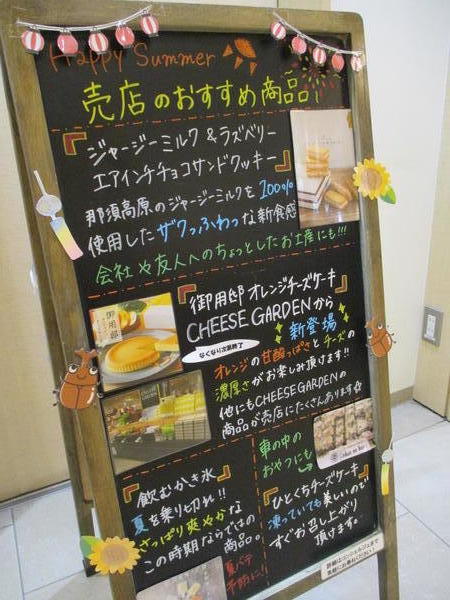 Happy Summer
売店のおすすめ商品
『ジャージーミルク&ラズベリー
エアインチョコサンドクッキー』
那須高原のジャージーミルクを100%
使用したザクっふわっな新食感
会社や友人へのちょっとしたお土産にも!!!
御用邸オレンジチーズケーキ
CHEESE GARDENから
新登場
なくなり次第終了
オレンジの甘酸っぱさとチーズの
濃厚さがお楽しみ頂けます!!
他にもCHEESE GARDENの
商品が売店にたくさんあります☆
御用邸
飲むかき氷
夏を乗り切れ!!
さっぱり爽やかな
この時期ならではの
商品。
夏バテ
予防に!
車の中の
おやつにも
ひとくちチーズケーキ
凍っていても美しいので
すぐお召し上がり
頂けます。
詳細はコンシェルジュまで
気軽にお尋ねください!